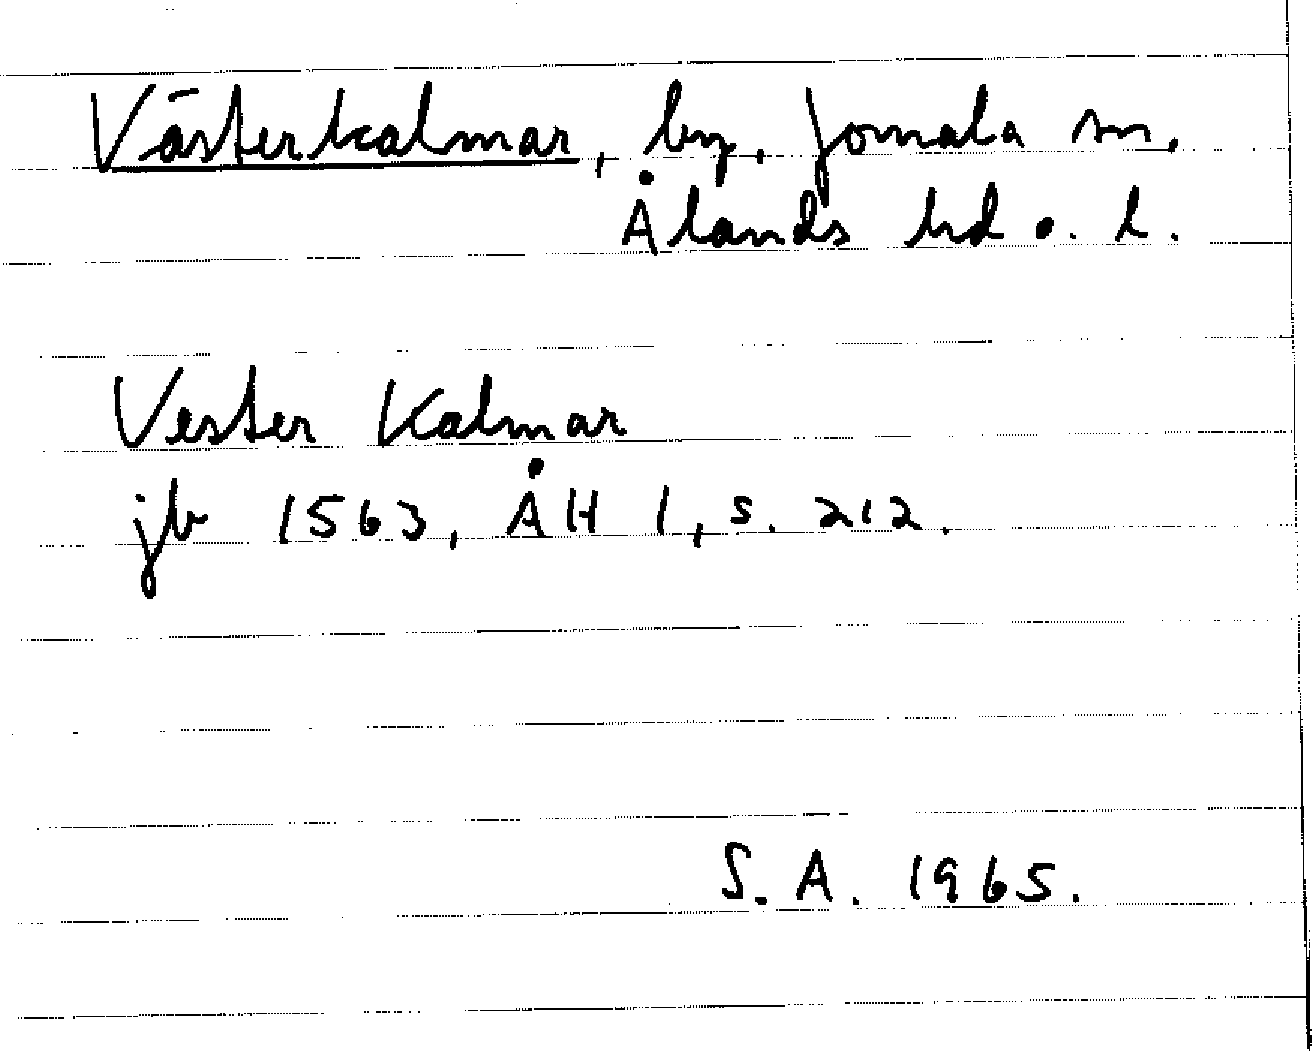 Västerkalmar, by, Jomala sn,
Ålands hd o. l.
Vester Kalmar
jb 1563, ÅH 1, s. 212.
S. A. 1965.